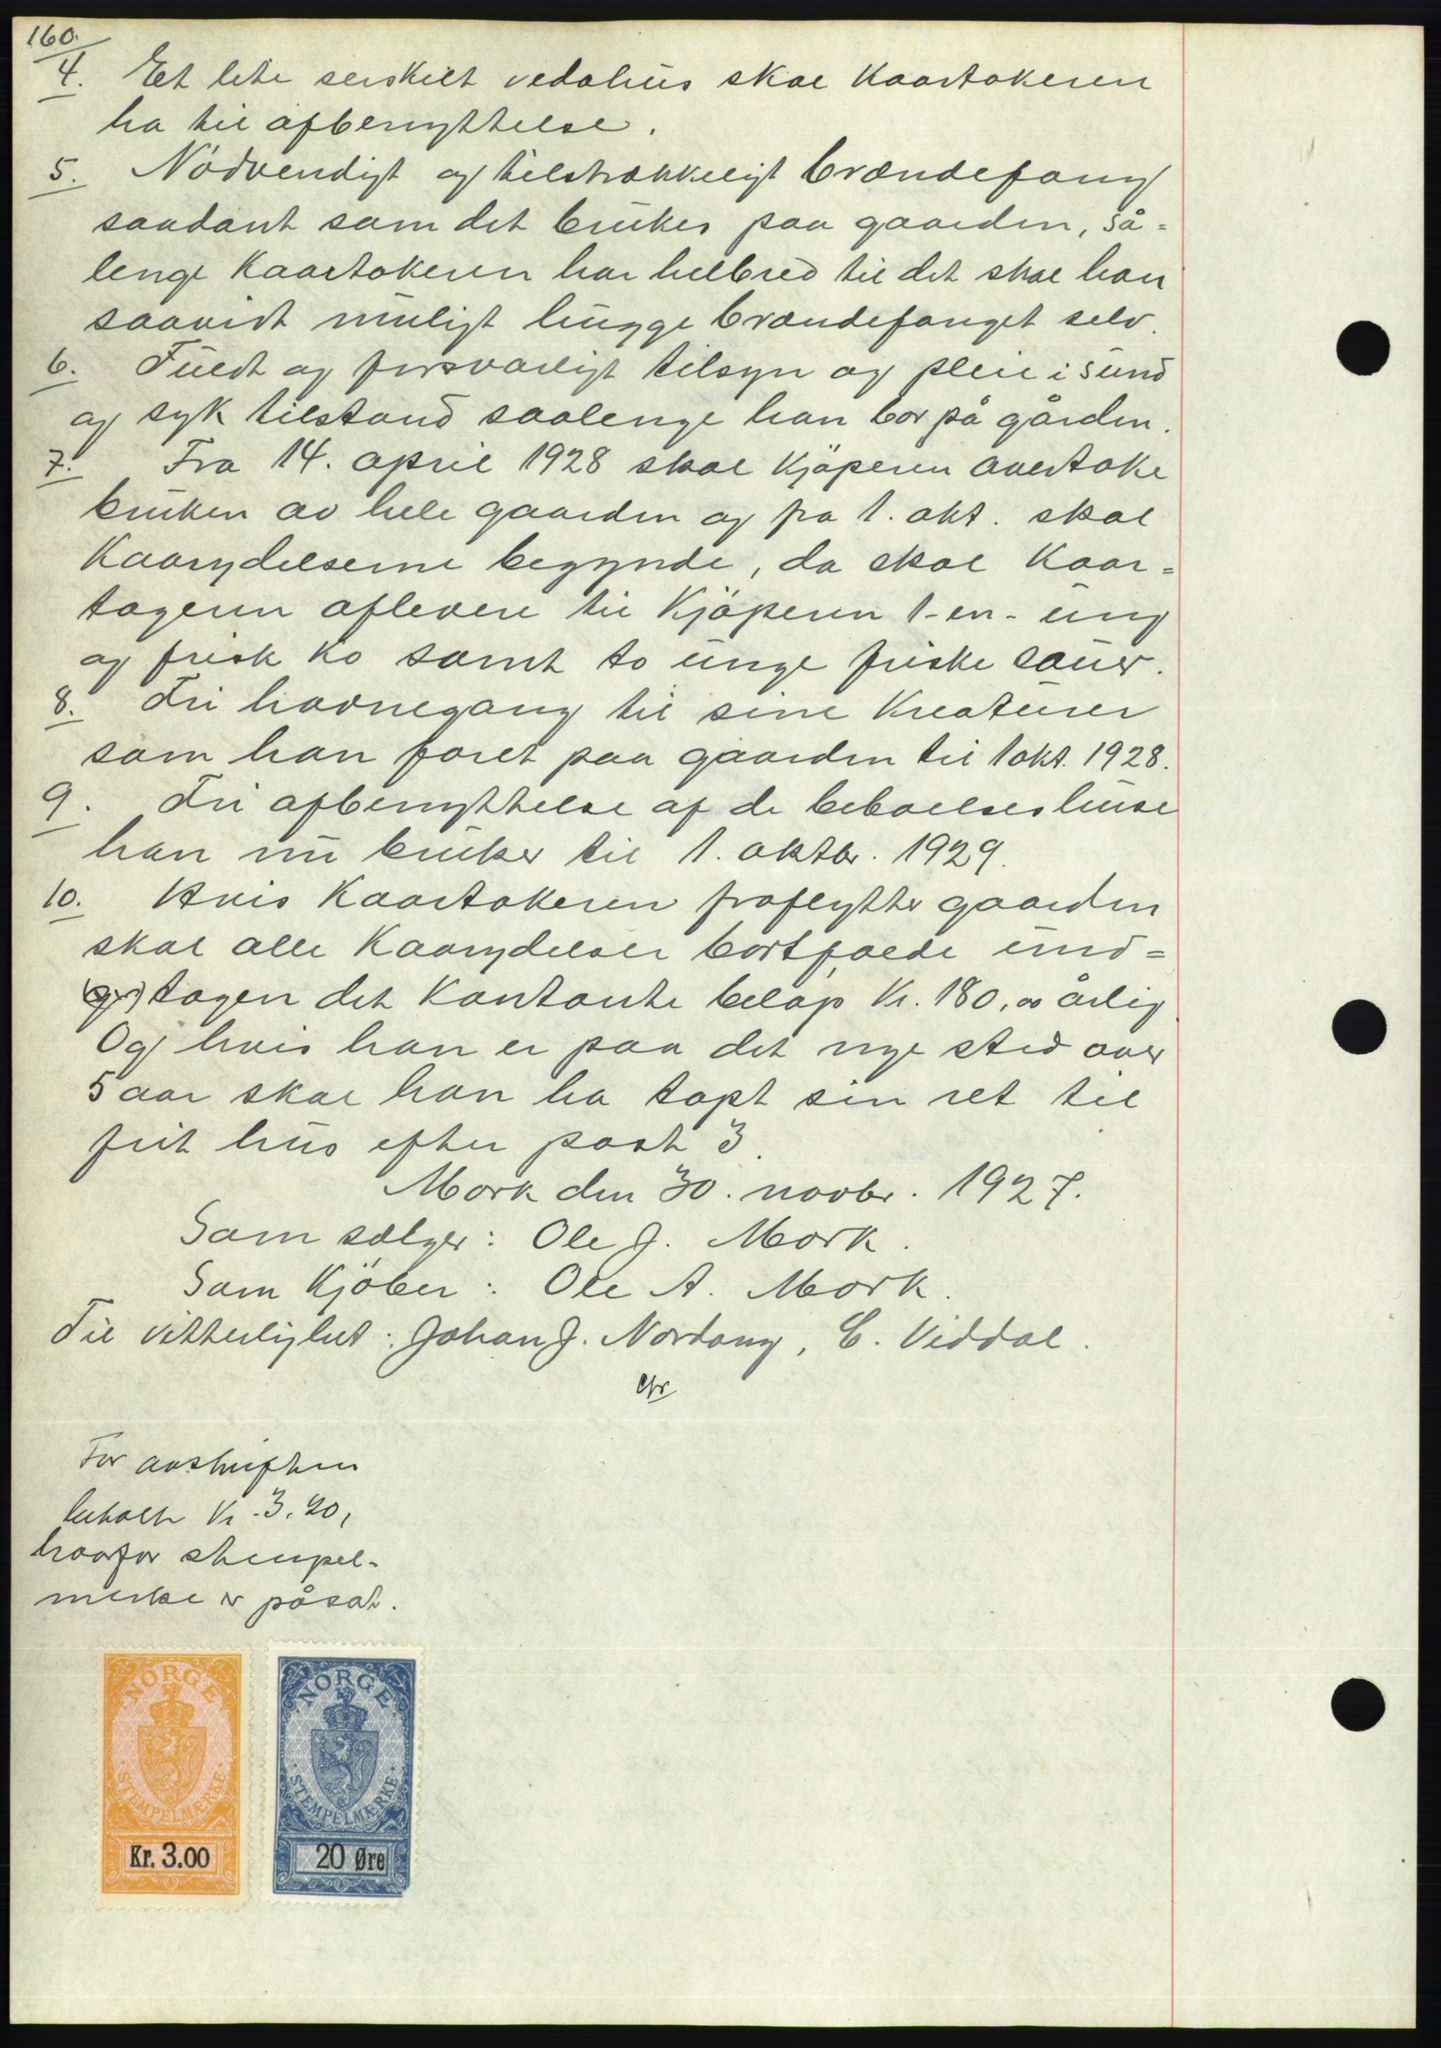 160.
4. Et lite serskilt vedahus skal Kaartakeren
ha til afbenyttelse.
5. Nödvendigt og tilstrækkeligt brændefang
saadant som det brukes paa gaarden, så-
lenge Kaartakeren har helbred til det skal han
saavidt muligt hugge brændefanget selv.
6. Fuldt og forsvarligt tilsyn og pleie i sund
og syk tilstand saalenge han bor på gården.
7. Fra 14. april 1928 skal Kjöperen overtake
bruken av hele gaarden og fra 1. okt. skal
Kaarydelserne begynde, da skal Kaar-
tageren aflevere til Kjöperen 1-en- ung
og frisk ko samt to unge friske sauer.
8. Fri havnegang til sine Kreaturer
som han foret paa gaarden til 1 okt. 1928.
9. Fri afbenyttelse af de beboelseshuse
han nu bruker til 1. oktbr. 1929.
10. Hvis Kaartakeren fraflytter gaarden
skal alle Kaarydelser bortfalde und-
tagen det Kontante beløp Kr. 180,00 årlig.
Og hvis han er paa det nye sted over
5 aar skal han ha tapt sin ret til
frit hus efter post 3.
Mork den 30. novbr. 1927.
Som sælger: Ole J. Mork.
Som Kjöber: Ole A. Mork.
Til vitterlighet: Johan J. Nordang, C. Viddal.
For avskriften
betalt Kr. 3.20,
hvorfor stempel-
merke er påsat.
NORGE
STEMPELMÆRKE
Kr. 3.00
NORGE
STEMPELMÆRKE
20 Øre